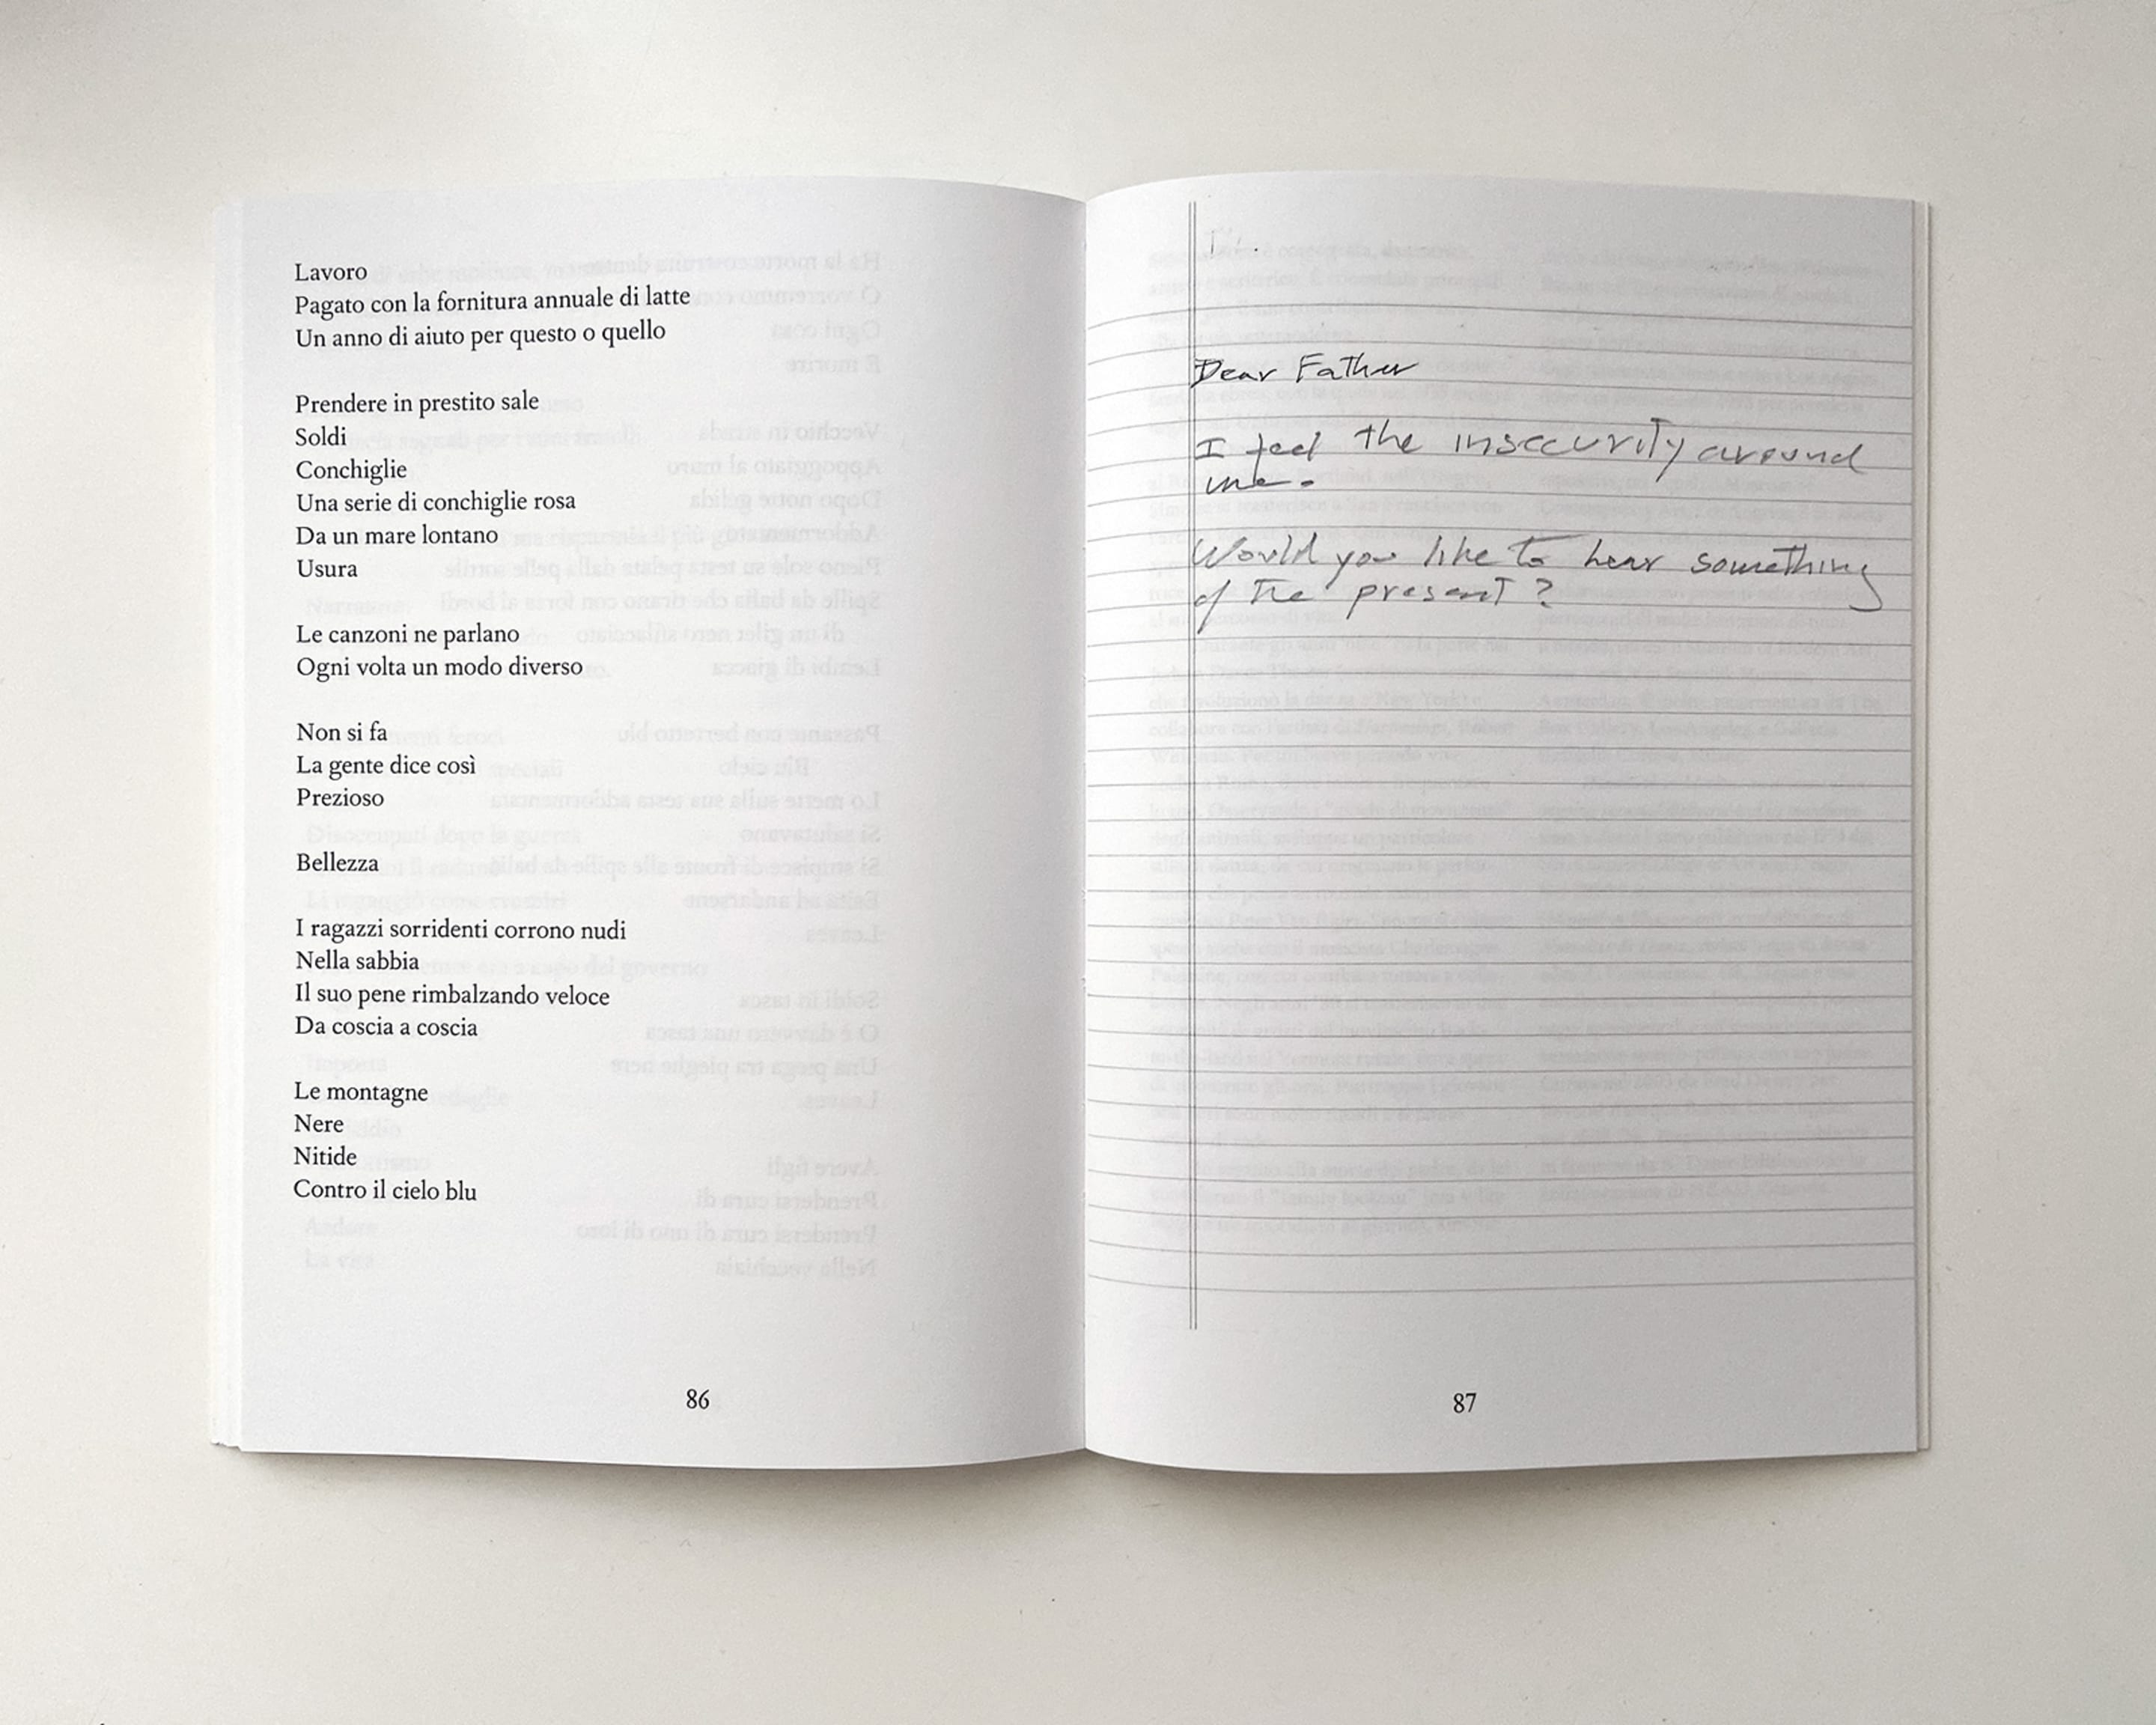 Lavoro
Pagato con la fornitura annuale di latte
Un anno di aiuto per questo o quello
Prendere in prestito sale
Soldi
Conchiglie
Una serie di conchiglie rosa
Da un mare lontano
Usura
Le canzoni ne parlano
Ogni volta un modo diverso
Non si fa
La gente dice così
Prezioso
Bellezza
I ragazzi sorridenti corrono nudi
Nella sabbia
Il suo pene rimbalzando veloce
Da coscia a coscia
Le montagne
Nere
Nitide
Contro il cielo blu
86
Dear Father
I feel the insecurity around
me.
Would you like to hear something
of the present?
87